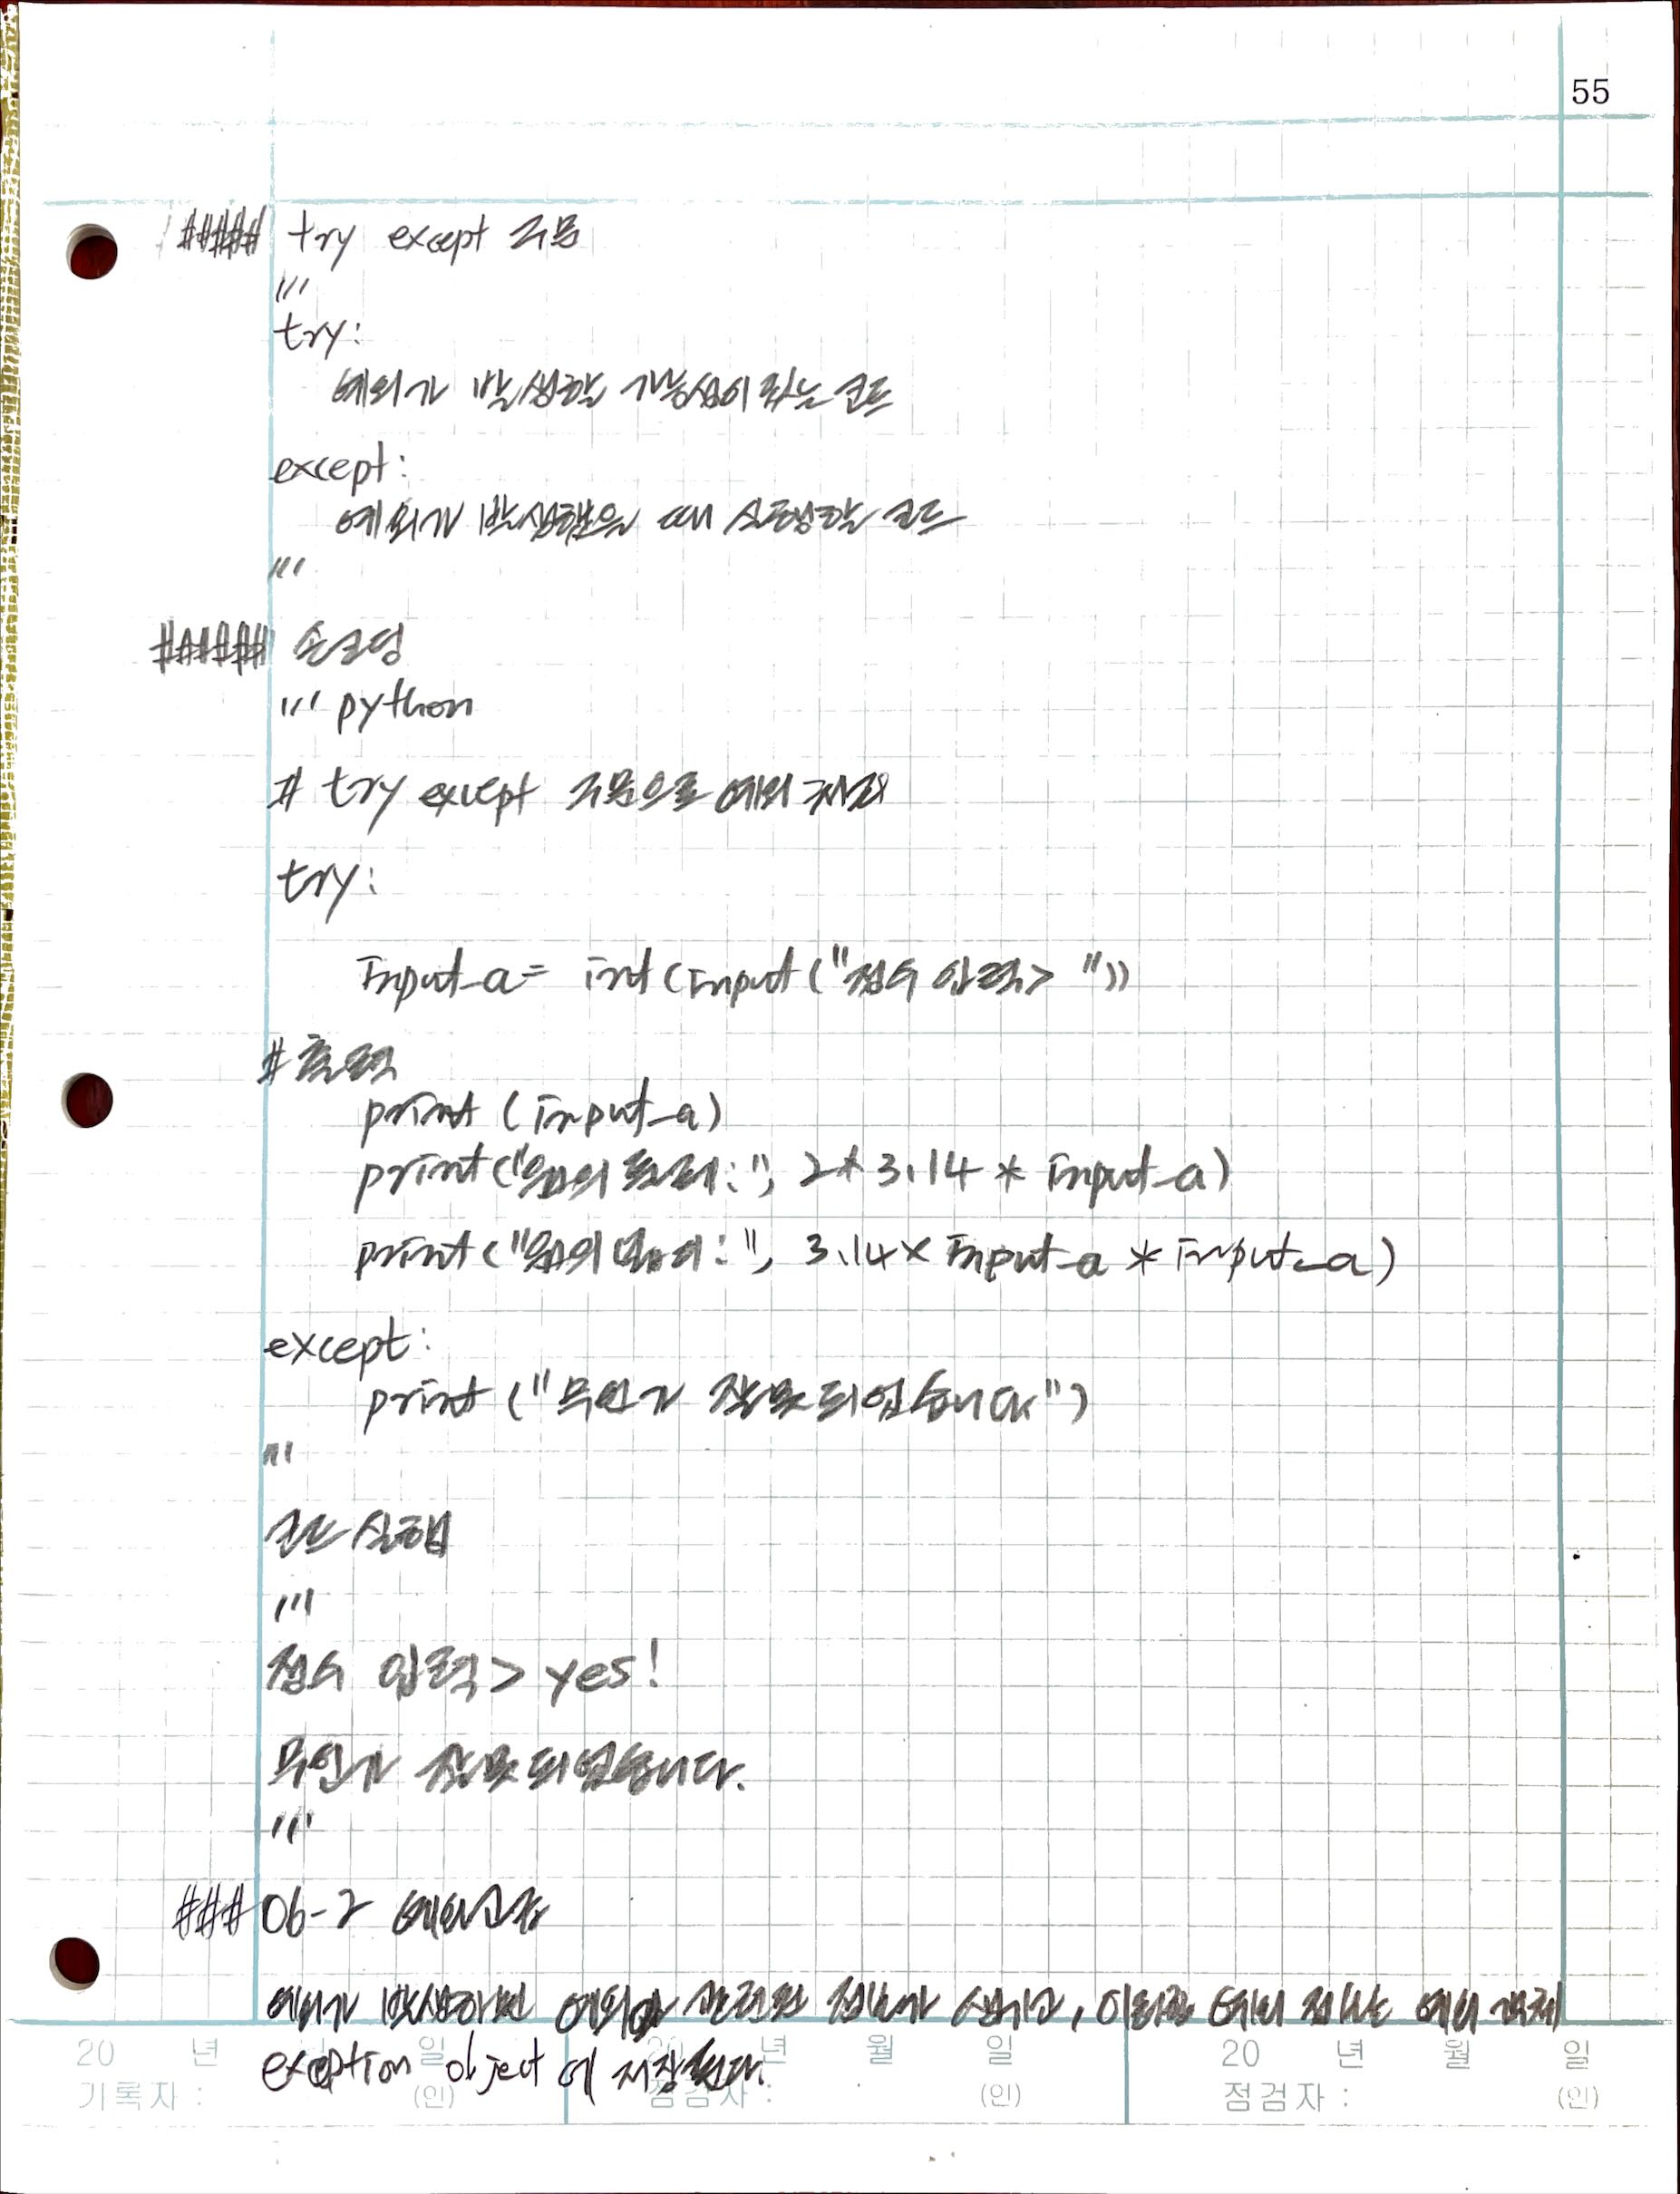 55
##### try except 구문
'''
try:
예외가 발생할 가능성이 있는 코드
except:
예외가 발생했을 때 실행할 코드
'''
##### 손코딩
''' python
# try except 구문으로 예외 처리
try:
input_a = int(input("정수 입력> "))
# 출력
print (input_a)
print("원의 둘레:", 2*3.14 * input_a)
print("원의 넓이:", 3.14* input_a * input_a)
except:
print ("무언가 잘못되었습니다")
'''
코드 실행
'''
정수 입력> yes!
무언가 잘못되었습니다.
'''
### 06-2 예외 고급
예외가 발생하면 예외와 관련된 정보가 생기고, 이러한 예외 정보는 예외 객체
exception object 에 저장된다.
20 년 일 년 월 일 20 년 월 일
기록자 : (인) 점검자 : (인) 점검자 : (인)